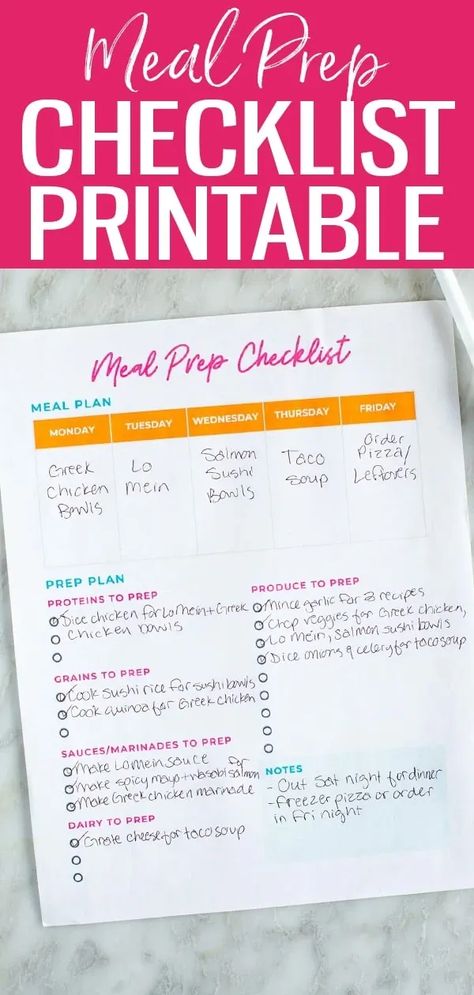 Meal Prep
CHECKLIST
PRINTABLE
Meal Prep Checklist
MEAL PLAN
MONDAY TUESDAY WEDNESDAY THURSDAY FRIDAY
Greek
Chicken
Bowls
Lo
Mein
Salmon
Sushi
Bowls
Taco
Soup
Order
Pizza/
Leftovers
PREP PLAN
PROTEINS TO PREP
Dice chicken for Lo Mein + Greek
Chicken Bowls
GRAINS TO PREP
Cook sushi rice for sushi bowls
Cook quinoa for Greek chicken
SAUCES/MARINADES TO PREP
Make Lo mein sauce for
Make spicy mayo + wasabi salmon
Make Greek chicken marinade
DAIRY TO PREP
Grate cheese for taco soup
PRODUCE TO PREP
Mince garlic for 3 recipes
Chop veggies for Greek chicken,
Lo mein, salmon sushi bowls
Dice onions & celery for taco soup
NOTES
- Out Sat night for dinner
- Freezer pizza or order
in Fri night